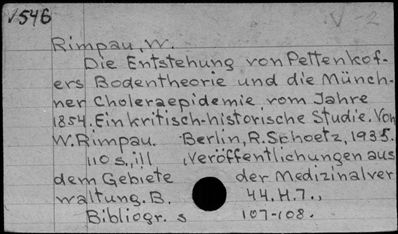 V546
V-2
Rimpau, W.
Die Entstehung von Pettenkof-
ers Bodentheorie und die Münch-
ner Choleraepidemie vom Jahre
1854. Ein kritisch-historische Studie. Von
W. Rimpau. Berlin, R. Schoetz, 1935.
110 s, ill, Veröffentlichungen aus
dem Gebiete der Medizinalver
waltung. B. 44. H. 7.,
Bibliogr. s 107-108.